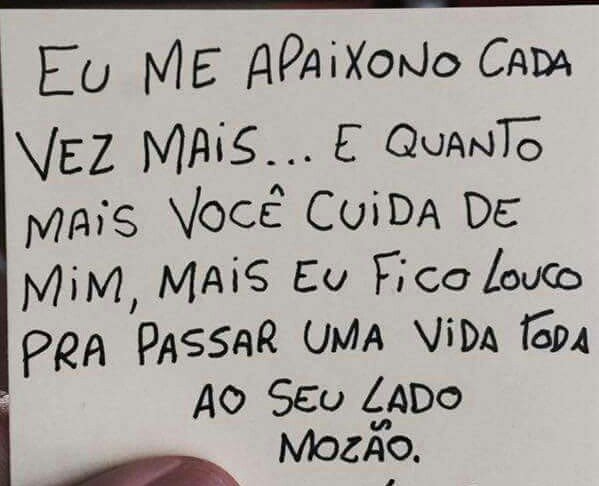 EU ME APAIXONO CADA
VEZ MAIS... E QUANTO
MAIS VOCÊ CUIDA DE
MIM, MAIS EU FICO LOUCO
PRA PASSAR UMA VIDA TODA
AO SEU LADO
MOZÃO.